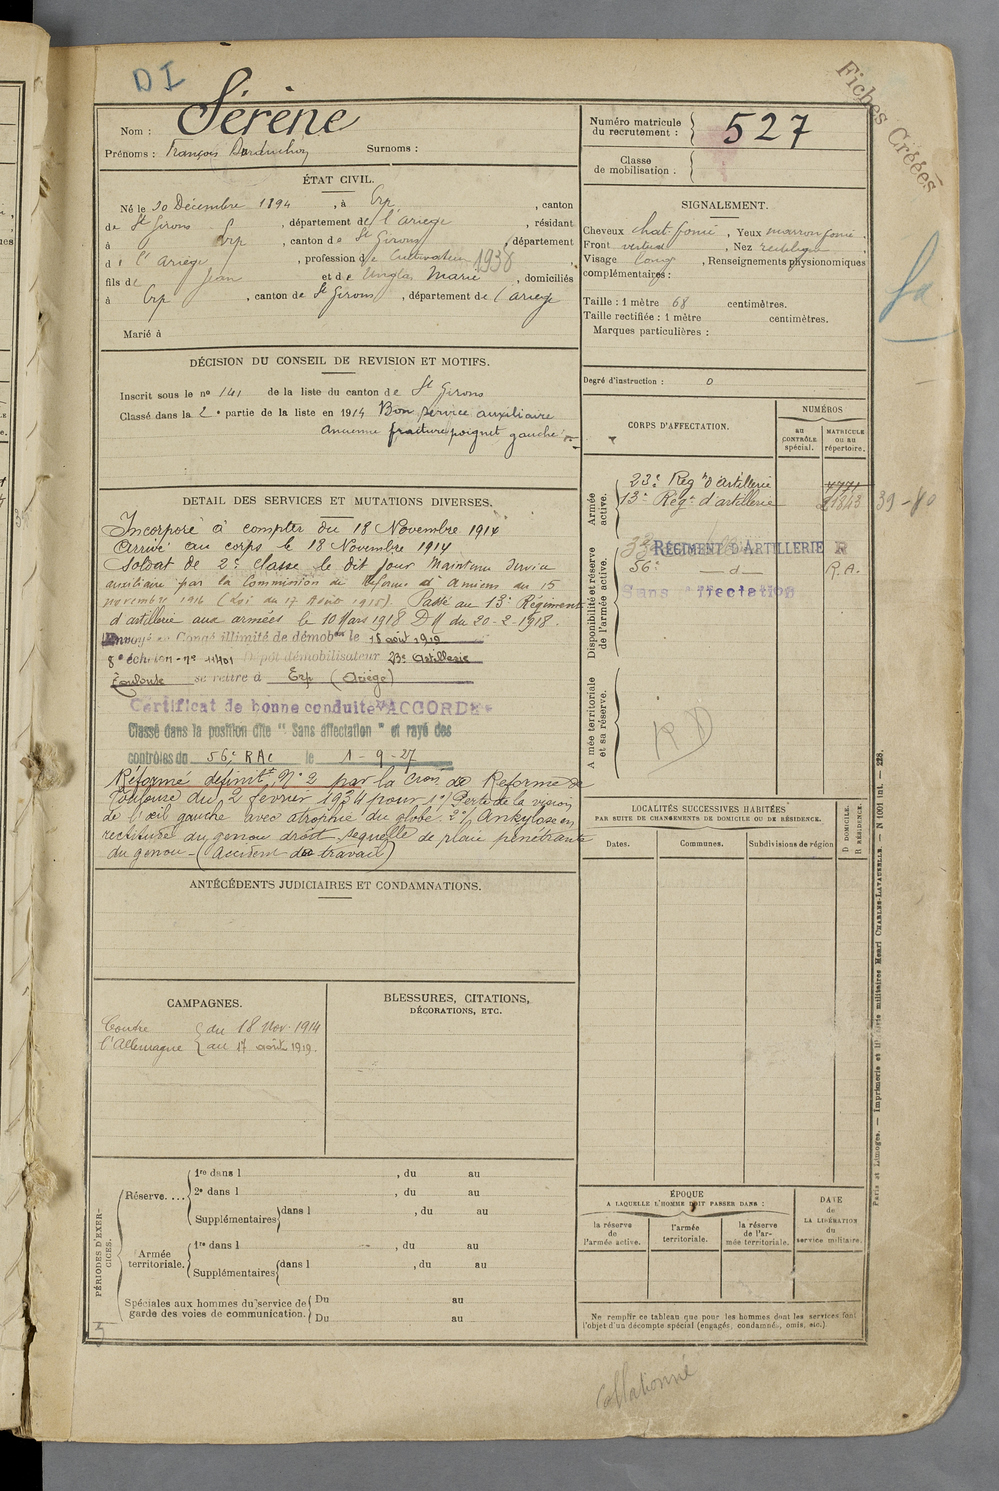 DI
Fiches Créées
Nom : Sérène
Prénoms : François Surnoms :
Numéro matricule du recrutement : 527
Classe de mobilisation :
ÉTAT CIVIL.
Né le 20 Décembre 1894, à Erp, canton
de St Girons, département de l'Ariège, résidant
à Erp, canton de St Girons, département
d l'Ariège, profession de Cultivateur 1938
fils de Jean et de Unglas Marie, domiciliés
à Erp, canton de St Girons, département de l'Ariège
Marié à
SIGNALEMENT.
Cheveux chat foncé, Yeux marron foncé,
Front vertical, Nez rectiligne
Visage long, Renseignements physionomiques
complémentaires :
Taille : 1 mètre 68 centimètres.
Taille rectifiée : 1 mètre centimètres.
Marques particulières :
Degré d'instruction : 0
DÉCISION DU CONSEIL DE REVISION ET MOTIFS.
Inscrit sous le nº 141 de la liste du canton de St Girons
Classé dans la 2e partie de la liste en 1914 Bon service auxiliaire
Ancienne fracture poignet gauche
DÉTAIL DES SERVICES ET MUTATIONS DIVERSES.
Incorporé à compter du 18 Novembre 1914
Arrivé au corps le 18 Novembre 1914
Soldat de 2e classe le dit jour Maintenu Service
auxiliaire par la Commission de Réforme d'Amiens du 15
novembre 1916 (Loi du 17 Août 1915). Passé au 13e Régiment
d'artillerie aux armées le 10 Mars 1918 DM du 20-2-1918.
Envoyé en Congé illimité de démobon le 18 août 1919
8e échelon - nº 11401 Dépôt démobilisateur 23e Artillerie
Toulouse se retire à Erp (Ariège)
Certificat de bonne conduite "ACCORDÉ"
Classé dans la position dite "Sans affectation" et rayé des
contrôles du 56e RAC le 1-9-27
Réformé définitt Nº 2 par la Cion de Réforme de
Toulouse du 2 février 1934 pour 1º/ Perte de la vision
de l'œil gauche avec atrophie du globe. 2º/ Ankylose en
rectitude du genou droit, séquelle de plaie pénétrante
du genou - (Accident de travail)
CORPS D'AFFECTATION.
NUMÉROS
AU CONTRÔLE spécial.
MATRICULE OU AU répertoire.
Armée active.
23e Regt d'artillerie 7771
13e Regt d'artillerie 21343 39-40
Disponibilité et réserve de l'armée active.
RÉGIMENT D'ARTILLERIE R
56e - d - R.A.
Sans affectation
Armée territoriale et sa réserve.
RD
ANTÉCÉDENTS JUDICIAIRES ET CONDAMNATIONS.
LOCALITÉS SUCCESSIVES HABITÉES
PAR SUITE DE CHANGEMENTS DE DOMICILE OU DE RÉSIDENCE.
Dates. Communes. Subdivisions de région
D DOMICILE.
R RÉSIDENCE.
CAMPAGNES.
Contre l'Allemagne { du 18 Nov. 1914
au 17 août 1919.
BLESSURES, CITATIONS,
DÉCORATIONS, ETC.
PÉRIODES D'EXERCICES.
Réserve....
1re dans l , du au
2e dans l , du au
Supplémentaires dans l , du au
Armée territoriale.
1re dans l , du au
Supplémentaires dans l , du au
Spéciales aux hommes du service de garde des voies de communication.
Du au
Du au
ÉPOQUE
A LAQUELLE L'HOMME DOIT PASSER DANS :
la réserve de l'armée active.
l'armée territoriale.
la réserve de l'armée territoriale.
DATE de LA LIBÉRATION du service militaire.
Ne remplir ce tableau que pour les hommes dont les services font
l'objet d'un décompte spécial (engagés, condamnés, omis, etc.)
Paris et Limoges. — Imprimerie et librairie militaires Henri CHARLES-LAVAUZELLE. — N 1001 int. — 228.
collationné